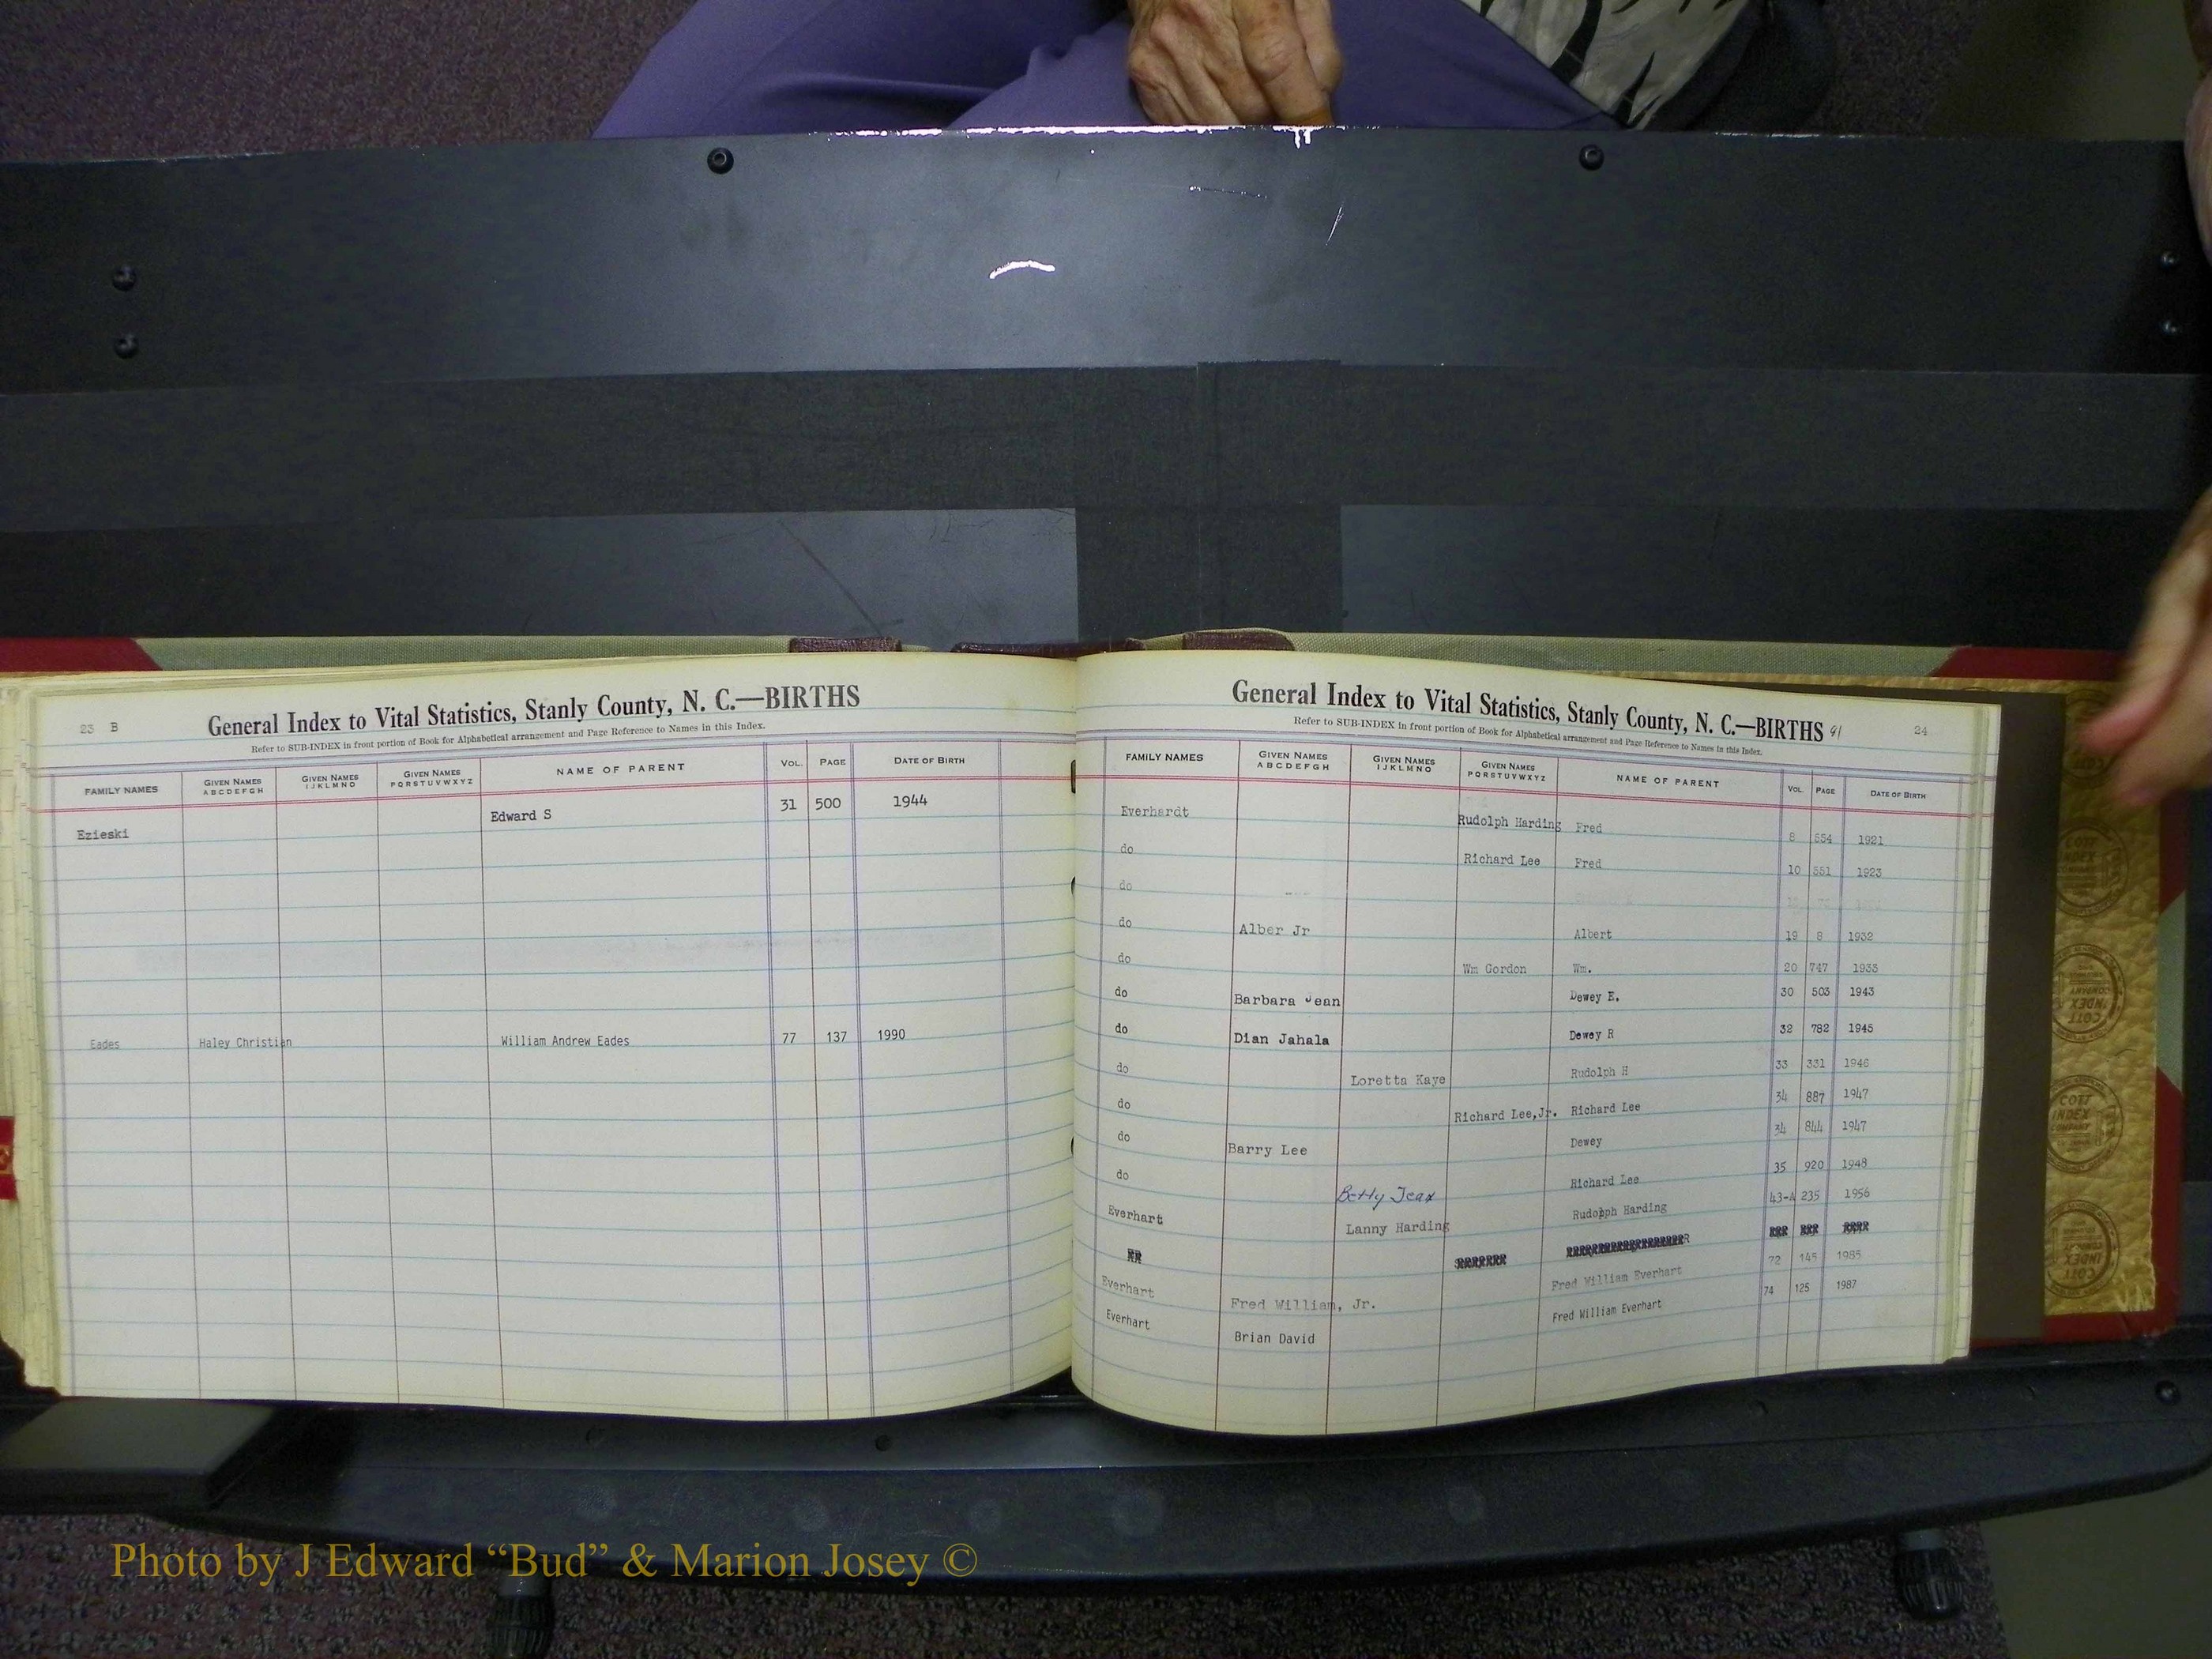 23 B
General Index to Vital Statistics, Stanly County, N. C.—BIRTHS
Refer to SUB-INDEX in front portion of Book for Alphabetical arrangement and Page Reference to Names in this Index.
FAMILY NAMES GIVEN NAMES ABCDEFGH GIVEN NAMES IJKLMNO GIVEN NAMES PQRSTUVWXYZ NAME OF PARENT VOL. PAGE DATE OF BIRTH
Ezieski Edward S 31 500 1944
Eades Haley Christian William Andrew Eades 77 137 1990
General Index to Vital Statistics, Stanly County, N. C.—BIRTHS 91 24
Refer to SUB-INDEX in front portion of Book for Alphabetical arrangement and Page Reference to Names in this Index.
FAMILY NAMES GIVEN NAMES ABCDEFGH GIVEN NAMES IJKLMNO GIVEN NAMES PQRSTUVWXYZ NAME OF PARENT VOL. PAGE DATE OF BIRTH
Everhardt Rudolph Harding Fred 8 554 1921
do Richard Lee Fred 10 551 1923
do
do Alber Jr Albert 19 8 1932
do Wm Gordon Wm. 20 747 1933
do Barbara Jean Dewey E. 30 503 1943
do Dian Jahala Dewey R 32 782 1945
do Loretta Kaye Rudolph H 33 331 1946
do Richard Lee,Jr. Richard Lee 34 887 1947
do Barry Lee Dewey 34 844 1947
do Betty Jean Richard Lee 35 920 1948
Everhart Lanny Harding Rudolph Harding 43-A 235 1956
Everhart Fred William, Jr. Fred William Everhart 72 145 1985
Everhart Brian David Fred William Everhart 74 125 1987
COTT INDEX COMPANY
Photo by J Edward “Bud” & Marion Josey ©